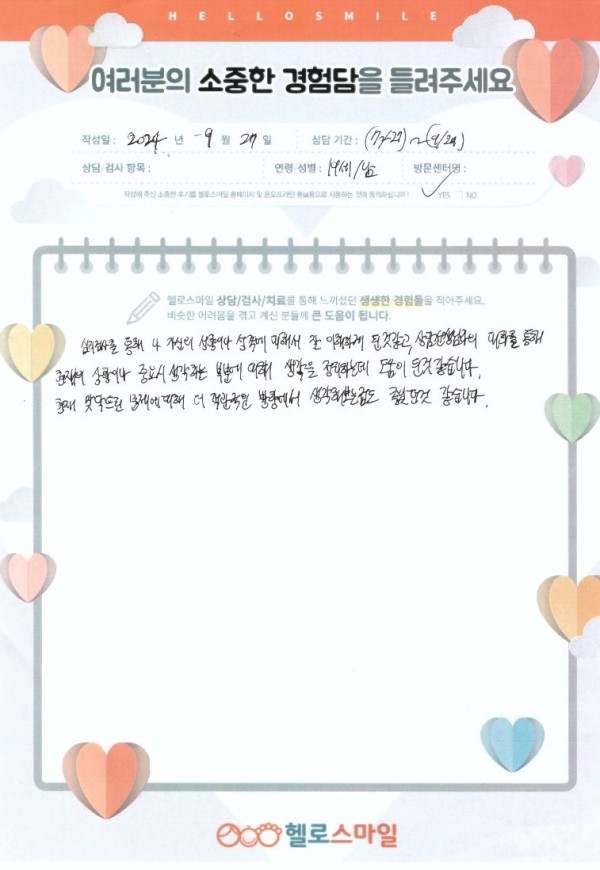 HELLOSMILE
여러분의 소중한 경험담을 들려주세요
작성일 : 2024 년 9 월 27 일 상담 기간 :
상담·검사 항목 : 연령·성별 : /남 방문센터명 :
작성해 주신 소중한 후기를 헬로스마일 홈페이지 및 온오프라인 홍보용으로 사용하는 것에 동의하십니까? YES NO
헬로스마일 상담/검사/치료를 통해 느끼셨던 생생한 경험들을 적어주세요.
비슷한 어려움을 겪고 계신 분들께 큰 도움이 됩니다.
심리검사를 통해 나 자신의 상황이나 성격에 대해서 잘 이해하게 된것같고, 상담선생님과의 대화를 통해
현재의 상황이나 중요시 생각하는 부분에 대해 생각을 정리하는데 도움이 된것 같습니다.
현재 맞닥뜨린 문제에 대해 더 객관적인 방향에서 생각해보는점도 좋았던것 같습니다.
헬로스마일